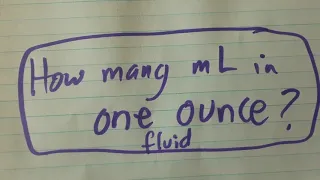 How many mL in
one ounce?
fluid